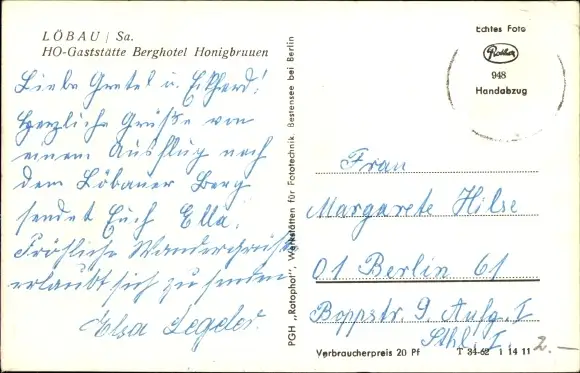 LÖBAU / Sa.
HO-Gaststätte Berghotel Honigbrunnen
Liebe Gretel u. Ekhard!
Herzliche Grüße von
einem Ausflug nach
dem Löbauer Berg
sendet Euch Ella.
Fröhliche Wandergrüße
erlaubt sich zu senden
Elsa
PGH „Rotophot", Werkstätten für Fototechnik, Bestensee bei Berlin
Echtes Foto
948
Handabzug
Frau
Margarete Hilse
01 Berlin 61
Boppstr. 9 Aufg. I
Sthl. I.
2.–
Verbraucherpreis 20 Pf T 34-62 1 14 11